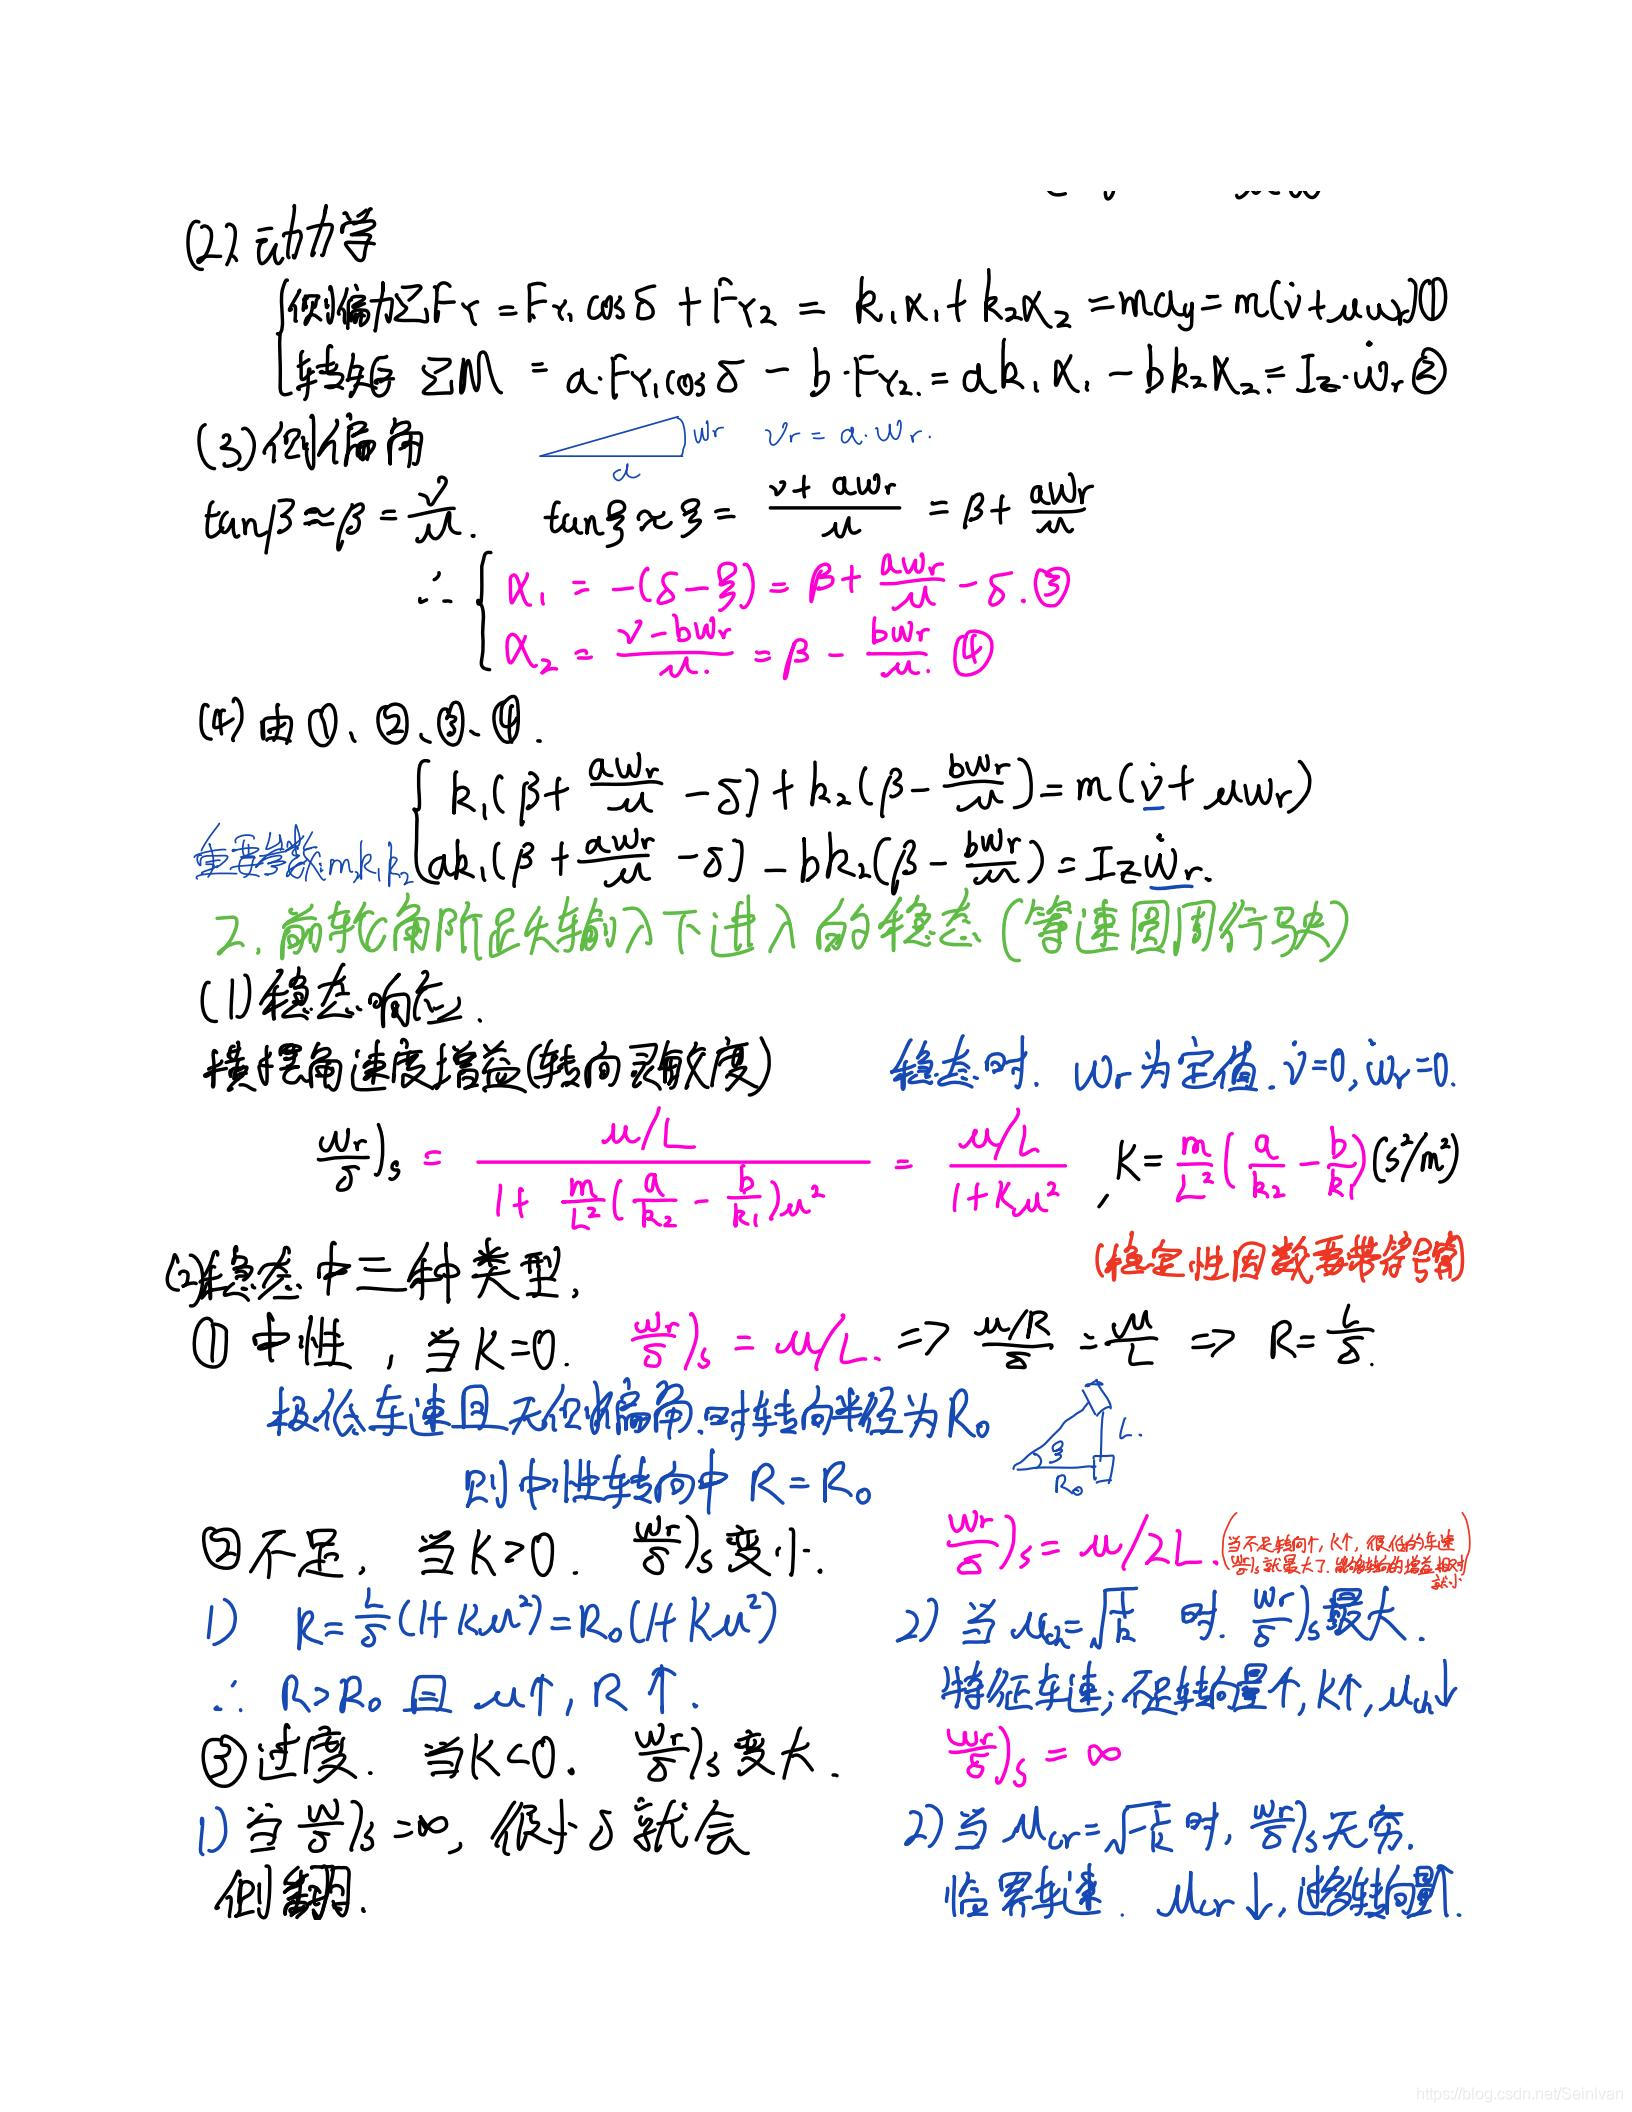 (2). 动力学
侧偏力 ΣF_Y = F_Y1 cosδ + F_Y2 = k₁α₁ + k₂α₂ = ma_y = m(v̇ + uω_r) ①
转矩 ΣM = a·F_Y1 cosδ − b·F_Y2 = ak₁α₁ − bk₂α₂ = I_z·ω̇_r ②
(3) 侧偏角
ω_r
a
v_r = a·ω_r.
tanβ ≈ β = v/u. tanξ ≈ ξ = (v + aω_r)/u = β + aω_r/u
∴ { α₁ = −(δ − ξ) = β + aω_r/u − δ. ③
α₂ = (v − bω_r)/u. = β − bω_r/u. ④
(4) 由①、②、③、④.
k₁(β + aω_r/u − δ) + k₂(β − bω_r/u) = m(v̇ + uω_r)
重要参数: m, k₁ k₂
ak₁(β + aω_r/u − δ) − bk₂(β − bω_r/u) = I_z ω̇_r.
2. 前轮角阶跃输入下进入的稳态 (等速圆周行驶)
(1) 稳态响应.
横摆角速度增益 (转向灵敏度)
稳态时. ω_r 为定值. v̇=0, ω̇_r=0.
ω_r/δ)_s = (u/L)/(1 + m/L²(a/k₂ − b/k₁)u²) = (u/L)/(1 + Ku²), K = m/L²(a/k₂ − b/k₁) (s²/m²)
(稳定性因数要带符号)
(2) 稳态中三种类型.
① 中性, 当 K=0. ω_r/δ)_s = u/L. => (u/R)/δ = u/L => R = L/δ.
极低车速且无侧偏角时转向半径为 R₀
则中性转向中 R = R₀
ξ
L.
R₀
② 不足, 当 K>0. ω_r/δ)_s 变小. ω_r/δ)_s = u/2L.
(当不足转向↑, K↑, 很低的车速
ω_r/δ)_s 就最大了. 转向的增益相对
就小)
1) R = L/δ(1+Ku²) = R₀(1+Ku²)
∴ R>R₀ 且 u↑, R↑.
2) 当 u_ch = √(1/K) 时. ω_r/δ)_s 最大.
特征车速; 不足转向量↑, K↑, u_ch↓
③ 过度. 当 K<0. ω_r/δ)_s 变大. ω_r/δ)_s = ∞
1) 当 ω/δ)_s = ∞, 很小 δ 就会
侧翻.
2) 当 u_cr = √(−1/K) 时, ω_r/δ)_s 无穷.
临界车速. u_cr↓, 过多转向量↑.
https://blog.csdn.net/SeinIvan